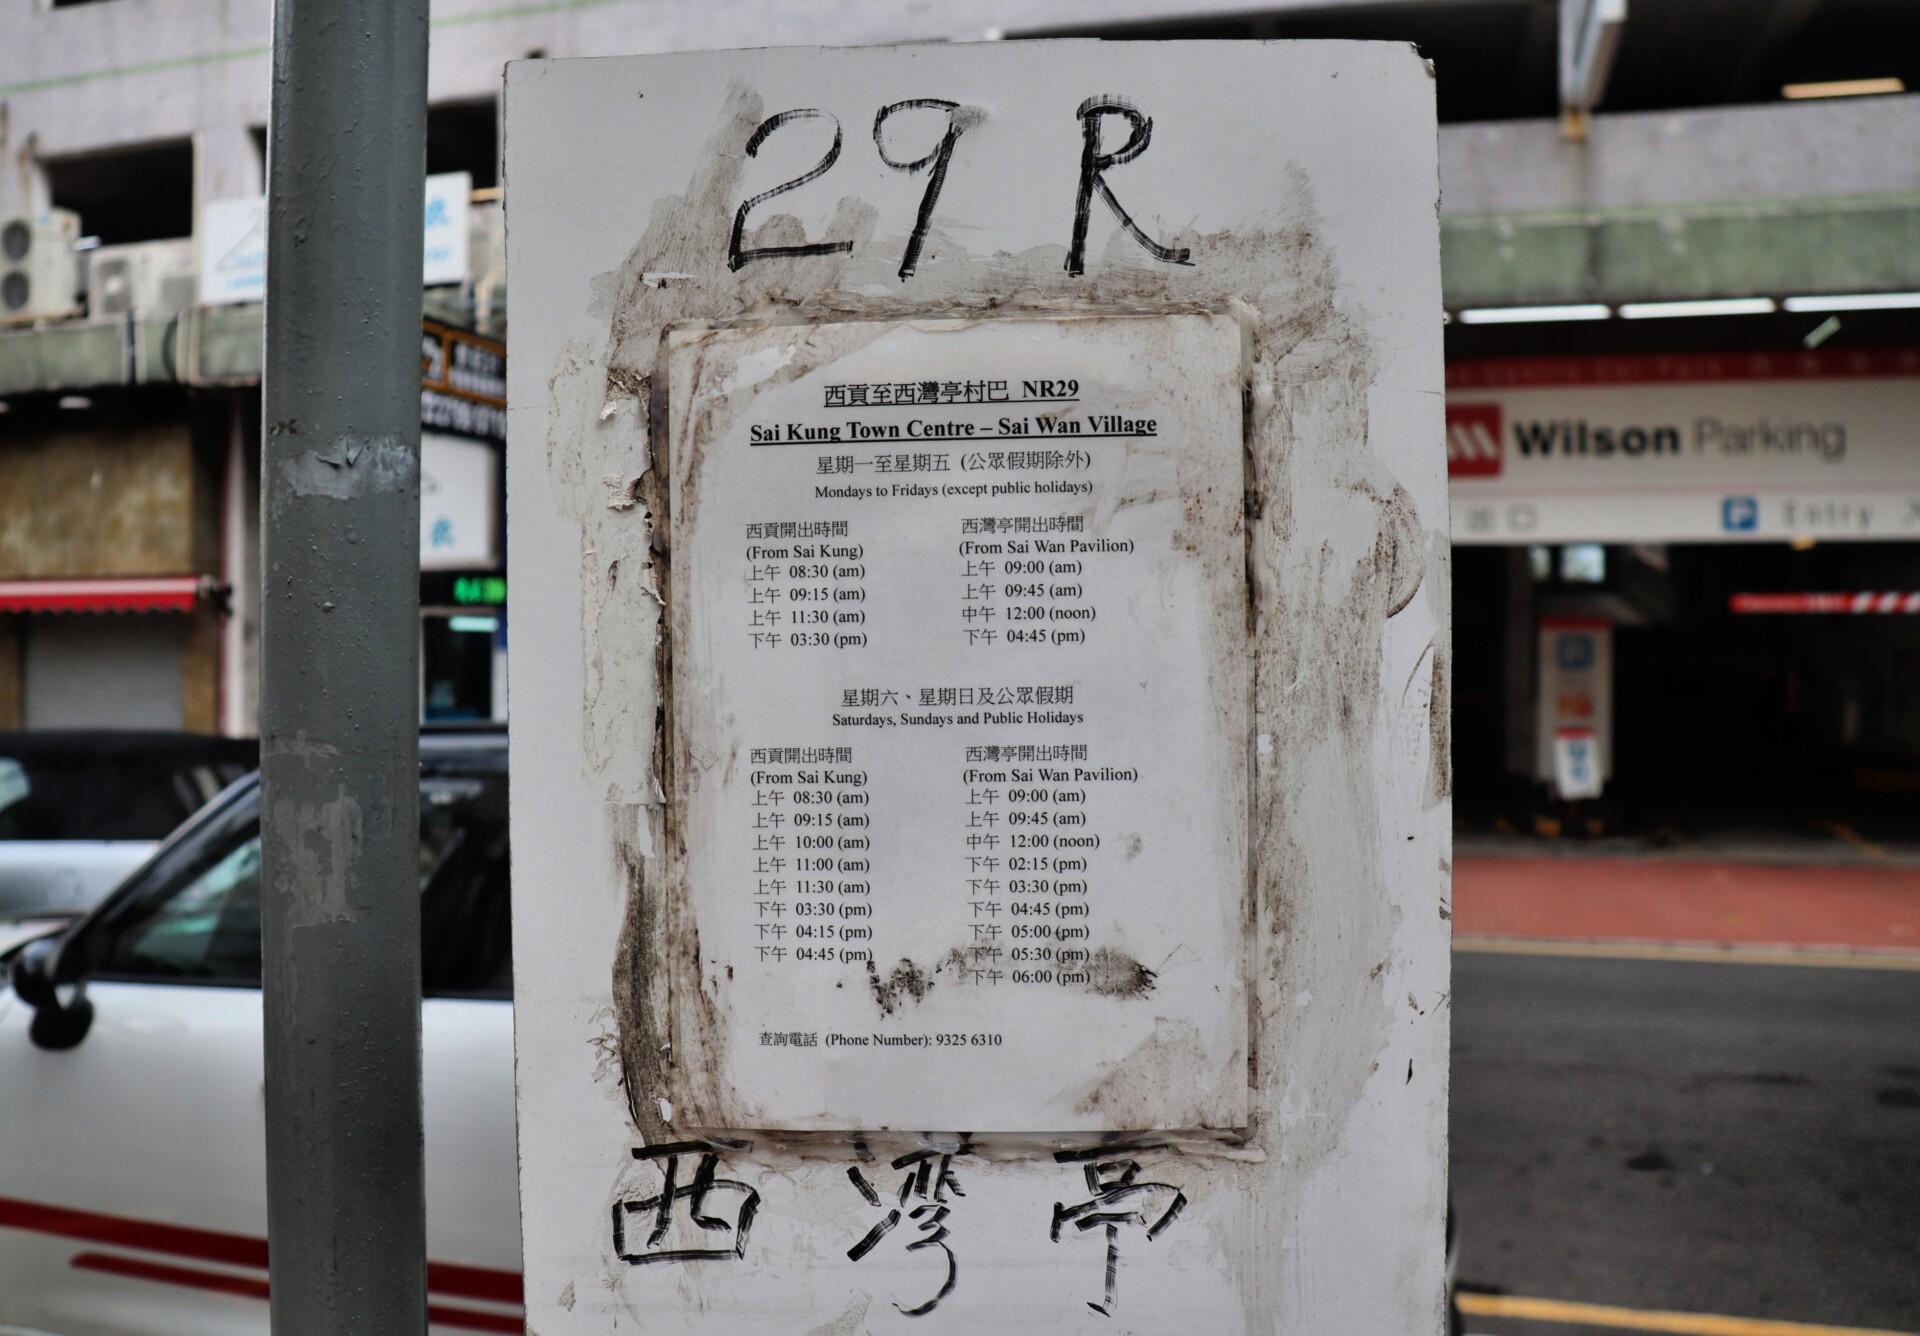 29 R
西貢至西灣亭村巴 NR29
Sai Kung Town Centre – Sai Wan Village
星期一至星期五 (公眾假期除外)
Mondays to Fridays (except public holidays)
西貢開出時間 西灣亭開出時間
(From Sai Kung) (From Sai Wan Pavilion)
上午 08:30 (am) 上午 09:00 (am)
上午 09:15 (am) 上午 09:45 (am)
上午 11:30 (am) 中午 12:00 (noon)
下午 03:30 (pm) 下午 04:45 (pm)
星期六、星期日及公眾假期
Saturdays, Sundays and Public Holidays
西貢開出時間 西灣亭開出時間
(From Sai Kung) (From Sai Wan Pavilion)
上午 08:30 (am) 上午 09:00 (am)
上午 09:15 (am) 上午 09:45 (am)
上午 10:00 (am) 中午 12:00 (noon)
上午 11:00 (am) 下午 02:15 (pm)
上午 11:30 (am) 下午 03:30 (pm)
下午 03:30 (pm) 下午 04:45 (pm)
下午 04:15 (pm) 下午 05:00 (pm)
下午 04:45 (pm) 下午 05:30 (pm)
下午 06:00 (pm)
查詢電話 (Phone Number): 9325 6310
西灣亭
Wilson Parking
P Entry